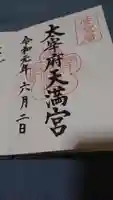 太宰府天満宮
令和元年六月二日